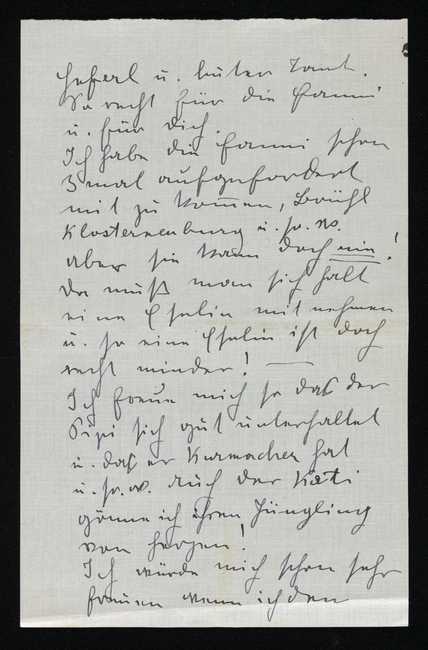 u. guter Tant.
So recht für die Fanni
u. für Dich.
Ich habe die Fanni schon
3 mal aufgefordert
mit zu kom̄en, Brühl
Klosterneuburg u. s. w.
aber sie kam doch nie!
Da muß man sich halt
eine Eselin mit nehmen
u. so eine Eselin ist doch
recht minder! —
Ich freue mich so daß der
Pipi sich gut unterhaltet
u. daß er Kurmacher hat
u. s. w. Auch der Kati
gönne ich ihren Jüngling
von Herzen!
Ich würde mich schon sehr
freuen wenn ich den